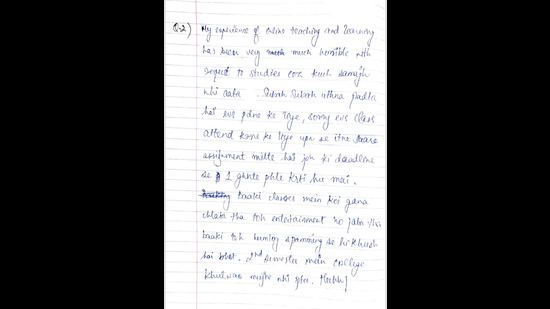 Q.2) My experience of online teaching and learning
has been very much humble with
respect to studies coz kuch samajh
nhi aata. Subah Subah uthna padta
hai evs padne ke liye, sorry evs class
attend karne ke liye upar se itne
assignment milte hai joh ki deadline
se 1 ghnte phle krti hu mai.
baaki classes mein koi gana
chlata tha toh entertainment ho jata thi
baaki toh humlog spamming se hi khush
hai bhot. 2nd semester main college
khulwao mujhe nhi pta.